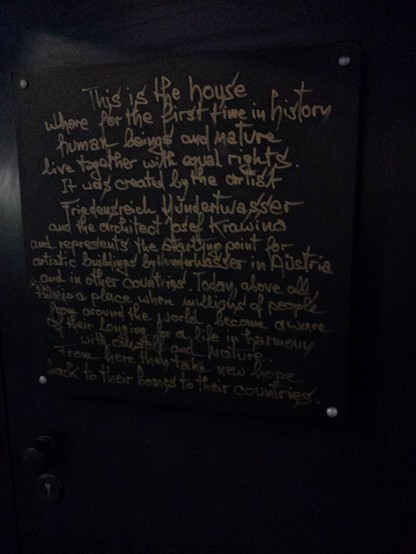 This is the house
where for the first time in history
human beings and nature
live together with equal rights.
It was created by the artist
Friedensreich Hundertwasser
and the architect Josef Krawina
and represents the starting point for
artistic buildings by Hundertwasser in Austria
and in other countries. Today, above all
this is a place where millions of people
from around the world become aware
of their longing for a life in harmony
with oneself and nature.
From here they take new hope
back to their homes to their countries.